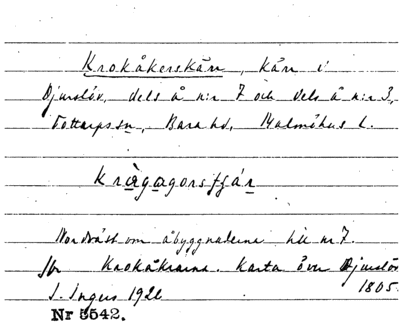 Krokåkerskärr, kärr i
Djurslöv, dels å n:r 7 och dels å n:r 3,
Tottarps sn, Bara hd, Malmöhus l.
krågagorstjár
Nordväst om åbyggnaderna till nr 7.
Jfr Krokåkrarna. Karta över Djurslöv
1805.
J. Ingers 1926
Nr 5542.